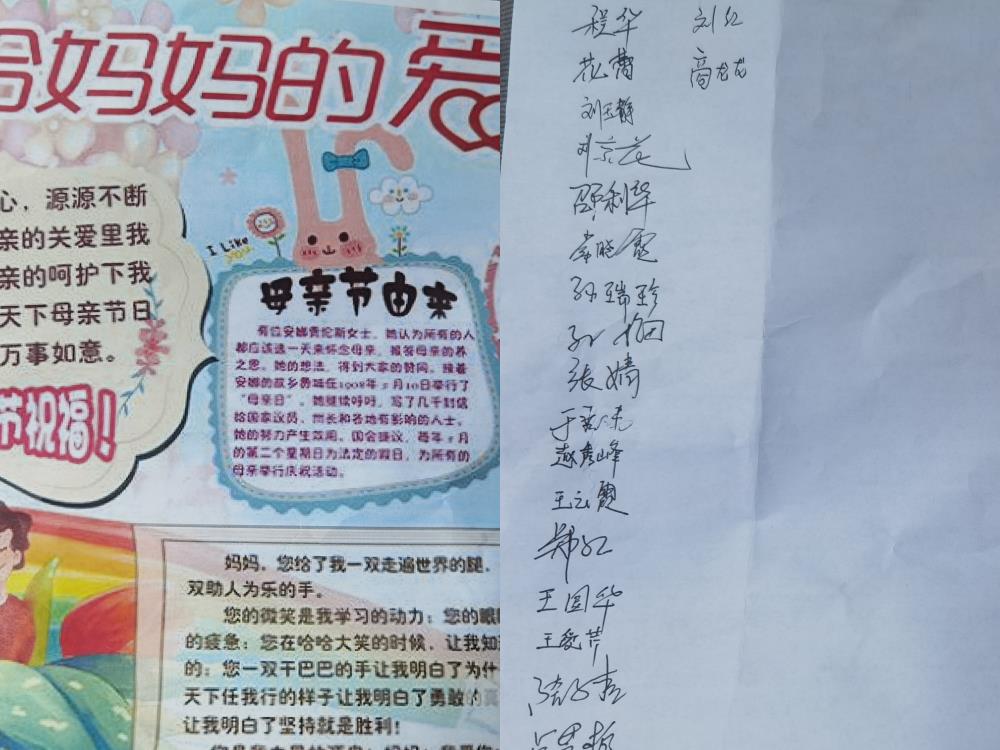 给妈妈的爱
心，源源不断
亲的关爱里我
亲的呵护下我
天下母亲节日
万事如意。
节祝福！
I Like
You
母亲节由来
有位安娜贵伦斯女士，她认为所有的人
都应该选一天来怀念母亲，报答母亲的养
之恩。她的想法，得到大家的赞同。随着
安娜的故乡费城在1908年5月10日举行了
“母亲日”。她继续呼吁，写了几千封信
给国家议员、州长和各地有影响的人士。
她的努力产生效用。国会建议，每年5月
的第二个星期日为法定的假日，为所有的
母亲举行庆祝活动。
妈妈，您给了我一双走遍世界的腿，
双助人为乐的手。
您的微笑是我学习的动力；您的眼
的疲惫；您在哈哈大笑的时候，让我知
的；您一双干巴巴的手让我明白了为什
天下任我行的样子让我明白了勇敢的真
让我明白了坚持就是胜利！
程华 刘红
花蕾 高龙龙
刘玉静
邵利华
常晓霞
孙瑞珍
张婧
赵秀峰
王云霞
郑红
王国华
王爱芹